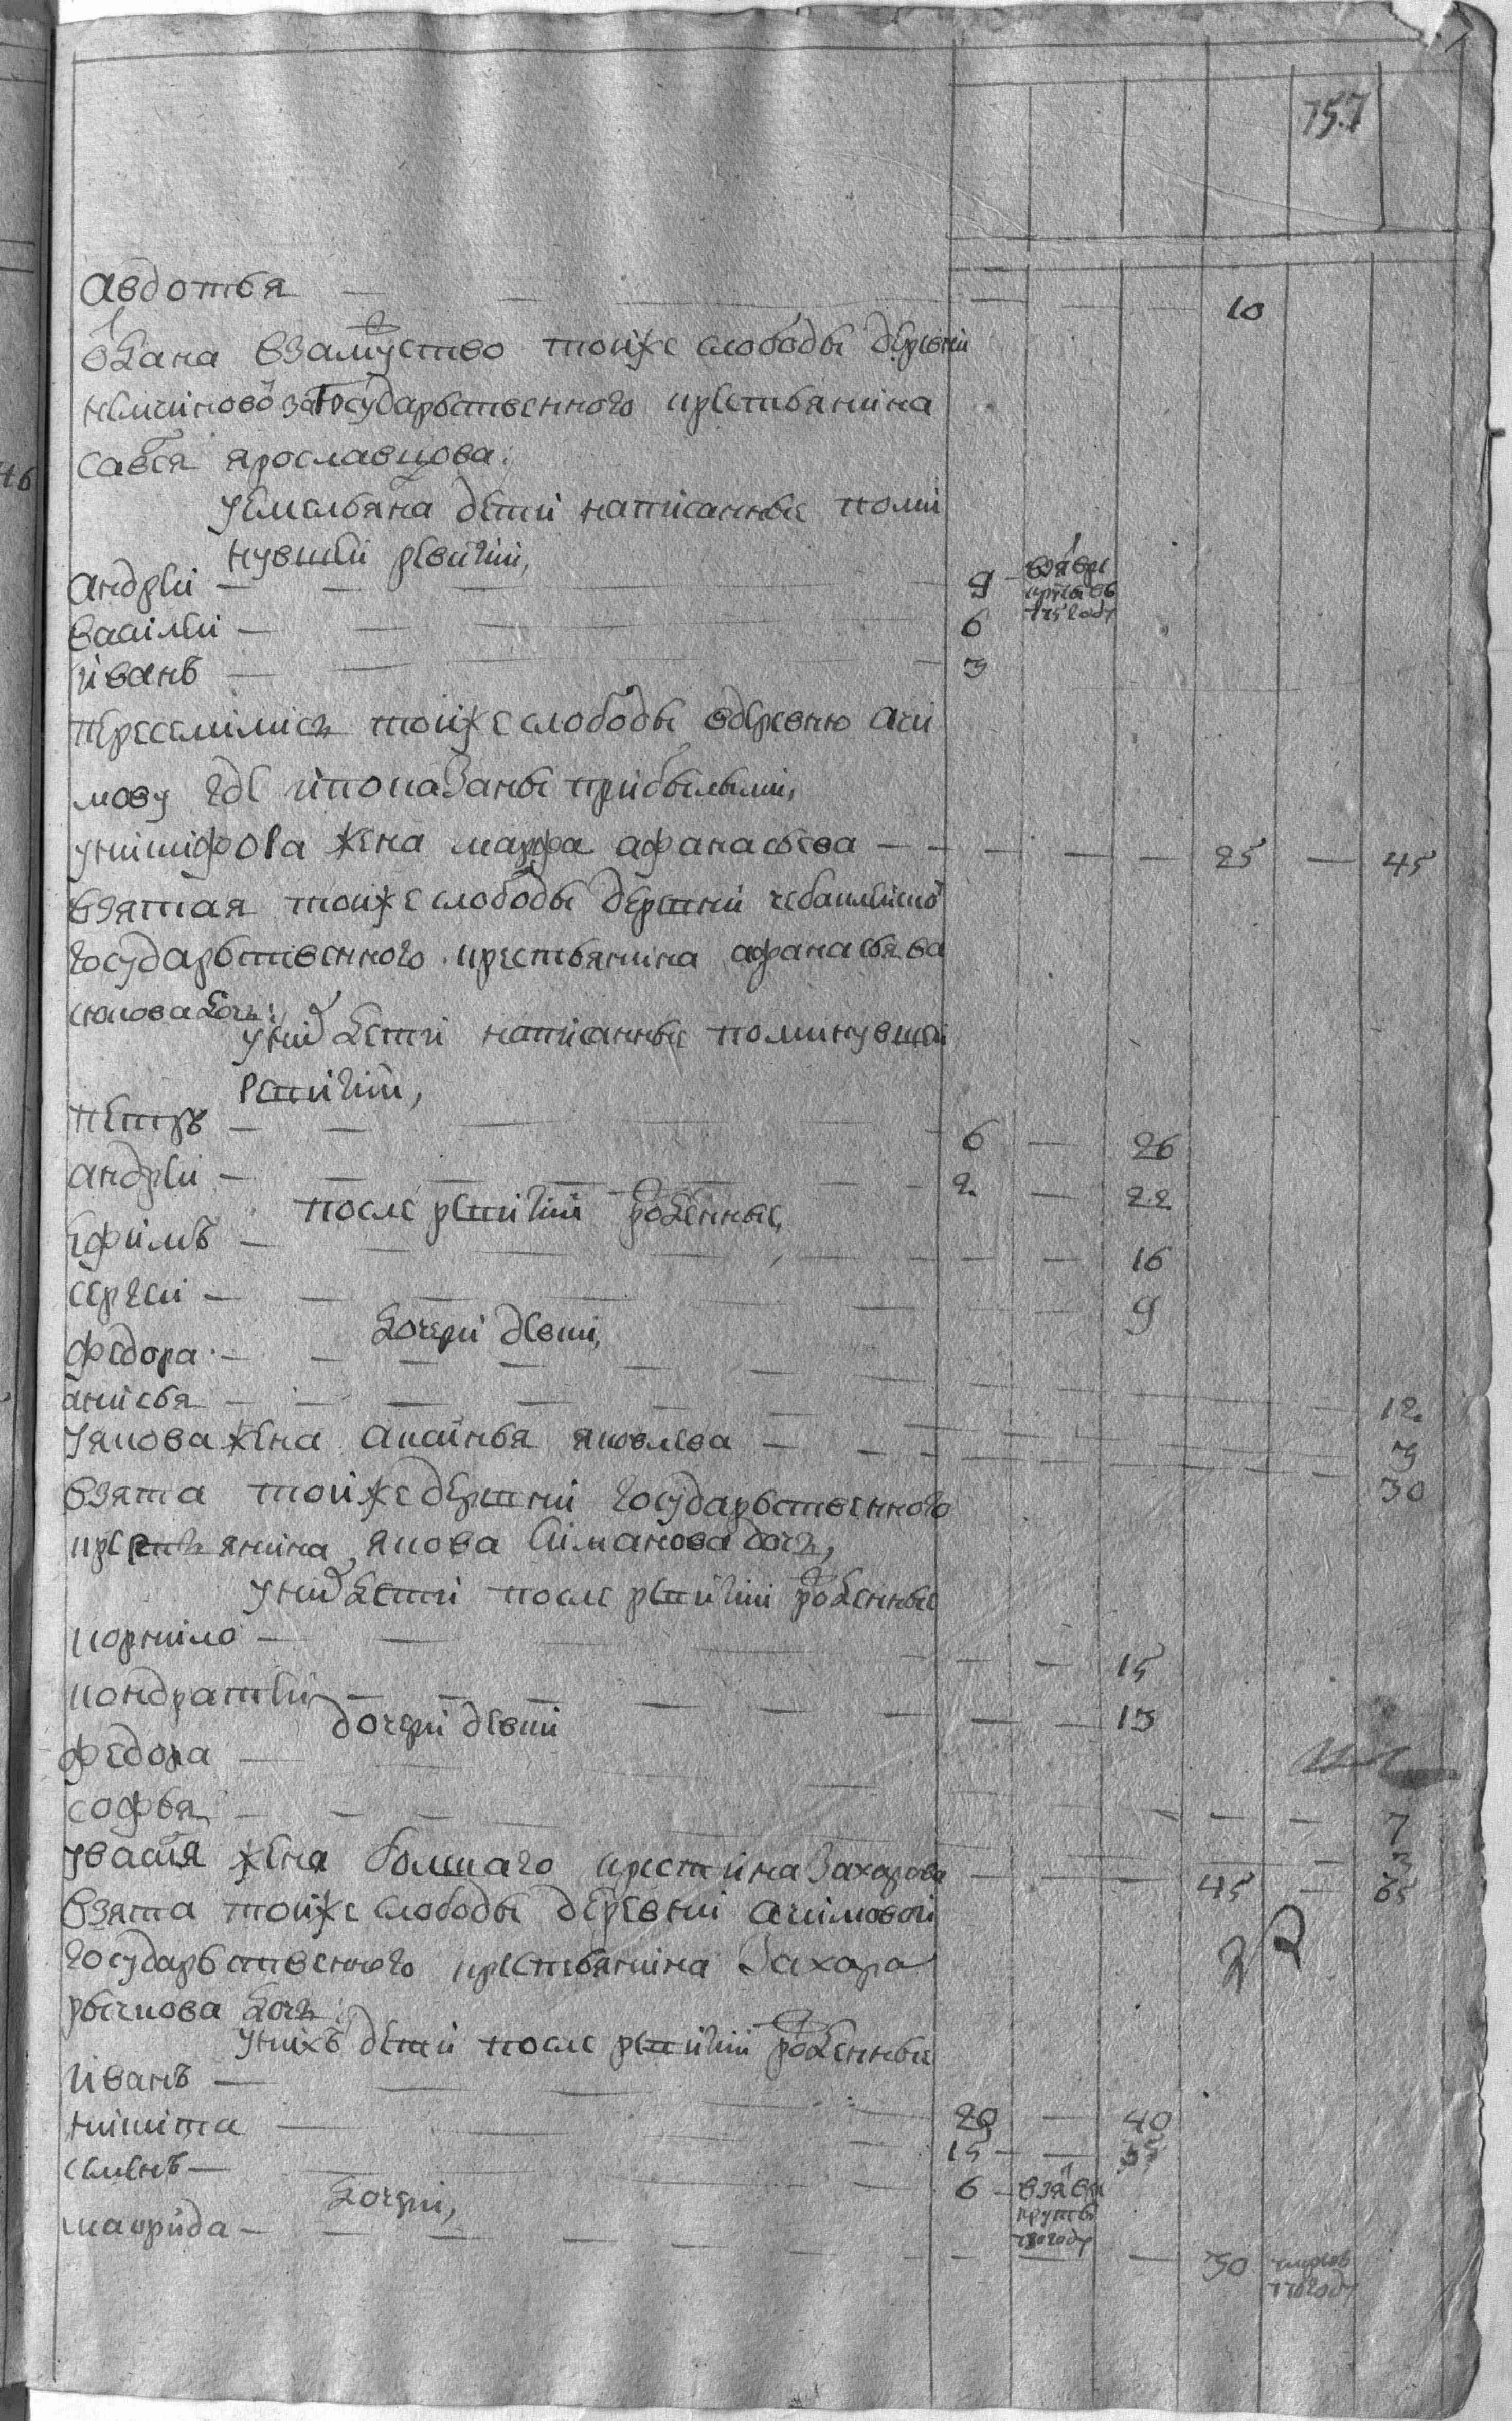 157
авдотья — 10
одана взамуство тойже слободы деревни
за государьственного крестьянина
савея ярославцова.
уемельяна детей написанные поми
нувшей ревизии,
андрей — 9 — взят врекруты въ году
василей — 6
иванъ — 3
переселились тойже слободы вдеревню аки
мову где ипоказаны прибылыми,
уникифора жена марфа афанасьева — 25 — 45
взятая тойже слободы деревни
государьственного крестьянина афанасья ва
дочь:
уних детей написанные поминувшей
ревизии,
петръ — 6 — 26
андрей — 2 — 22
после ревизии рожденные,
ефимъ — 16
сергей — 9
дочери девки,
федора — 12
анисья — 3
уякова жена аксинья яковлева — 30
взята тойже деревни государьственного
крестьянина якова дочь,
уних детей после ревизии рожденные
корнило — 15
кондратей — 13
дочери девки
федора — 7
софья — 3
увасилья жена Захарова — 45 — 65
взята тойже слободы деревни акимовой
государьственного крестьянина Захара
рычкова дочь:
унихъ детей после ревизии рожденные
иванъ — 20 — 40
никита — 15 — 35
семенъ — 6 — взят в рекруты году
дочери,
маврида — 30 году